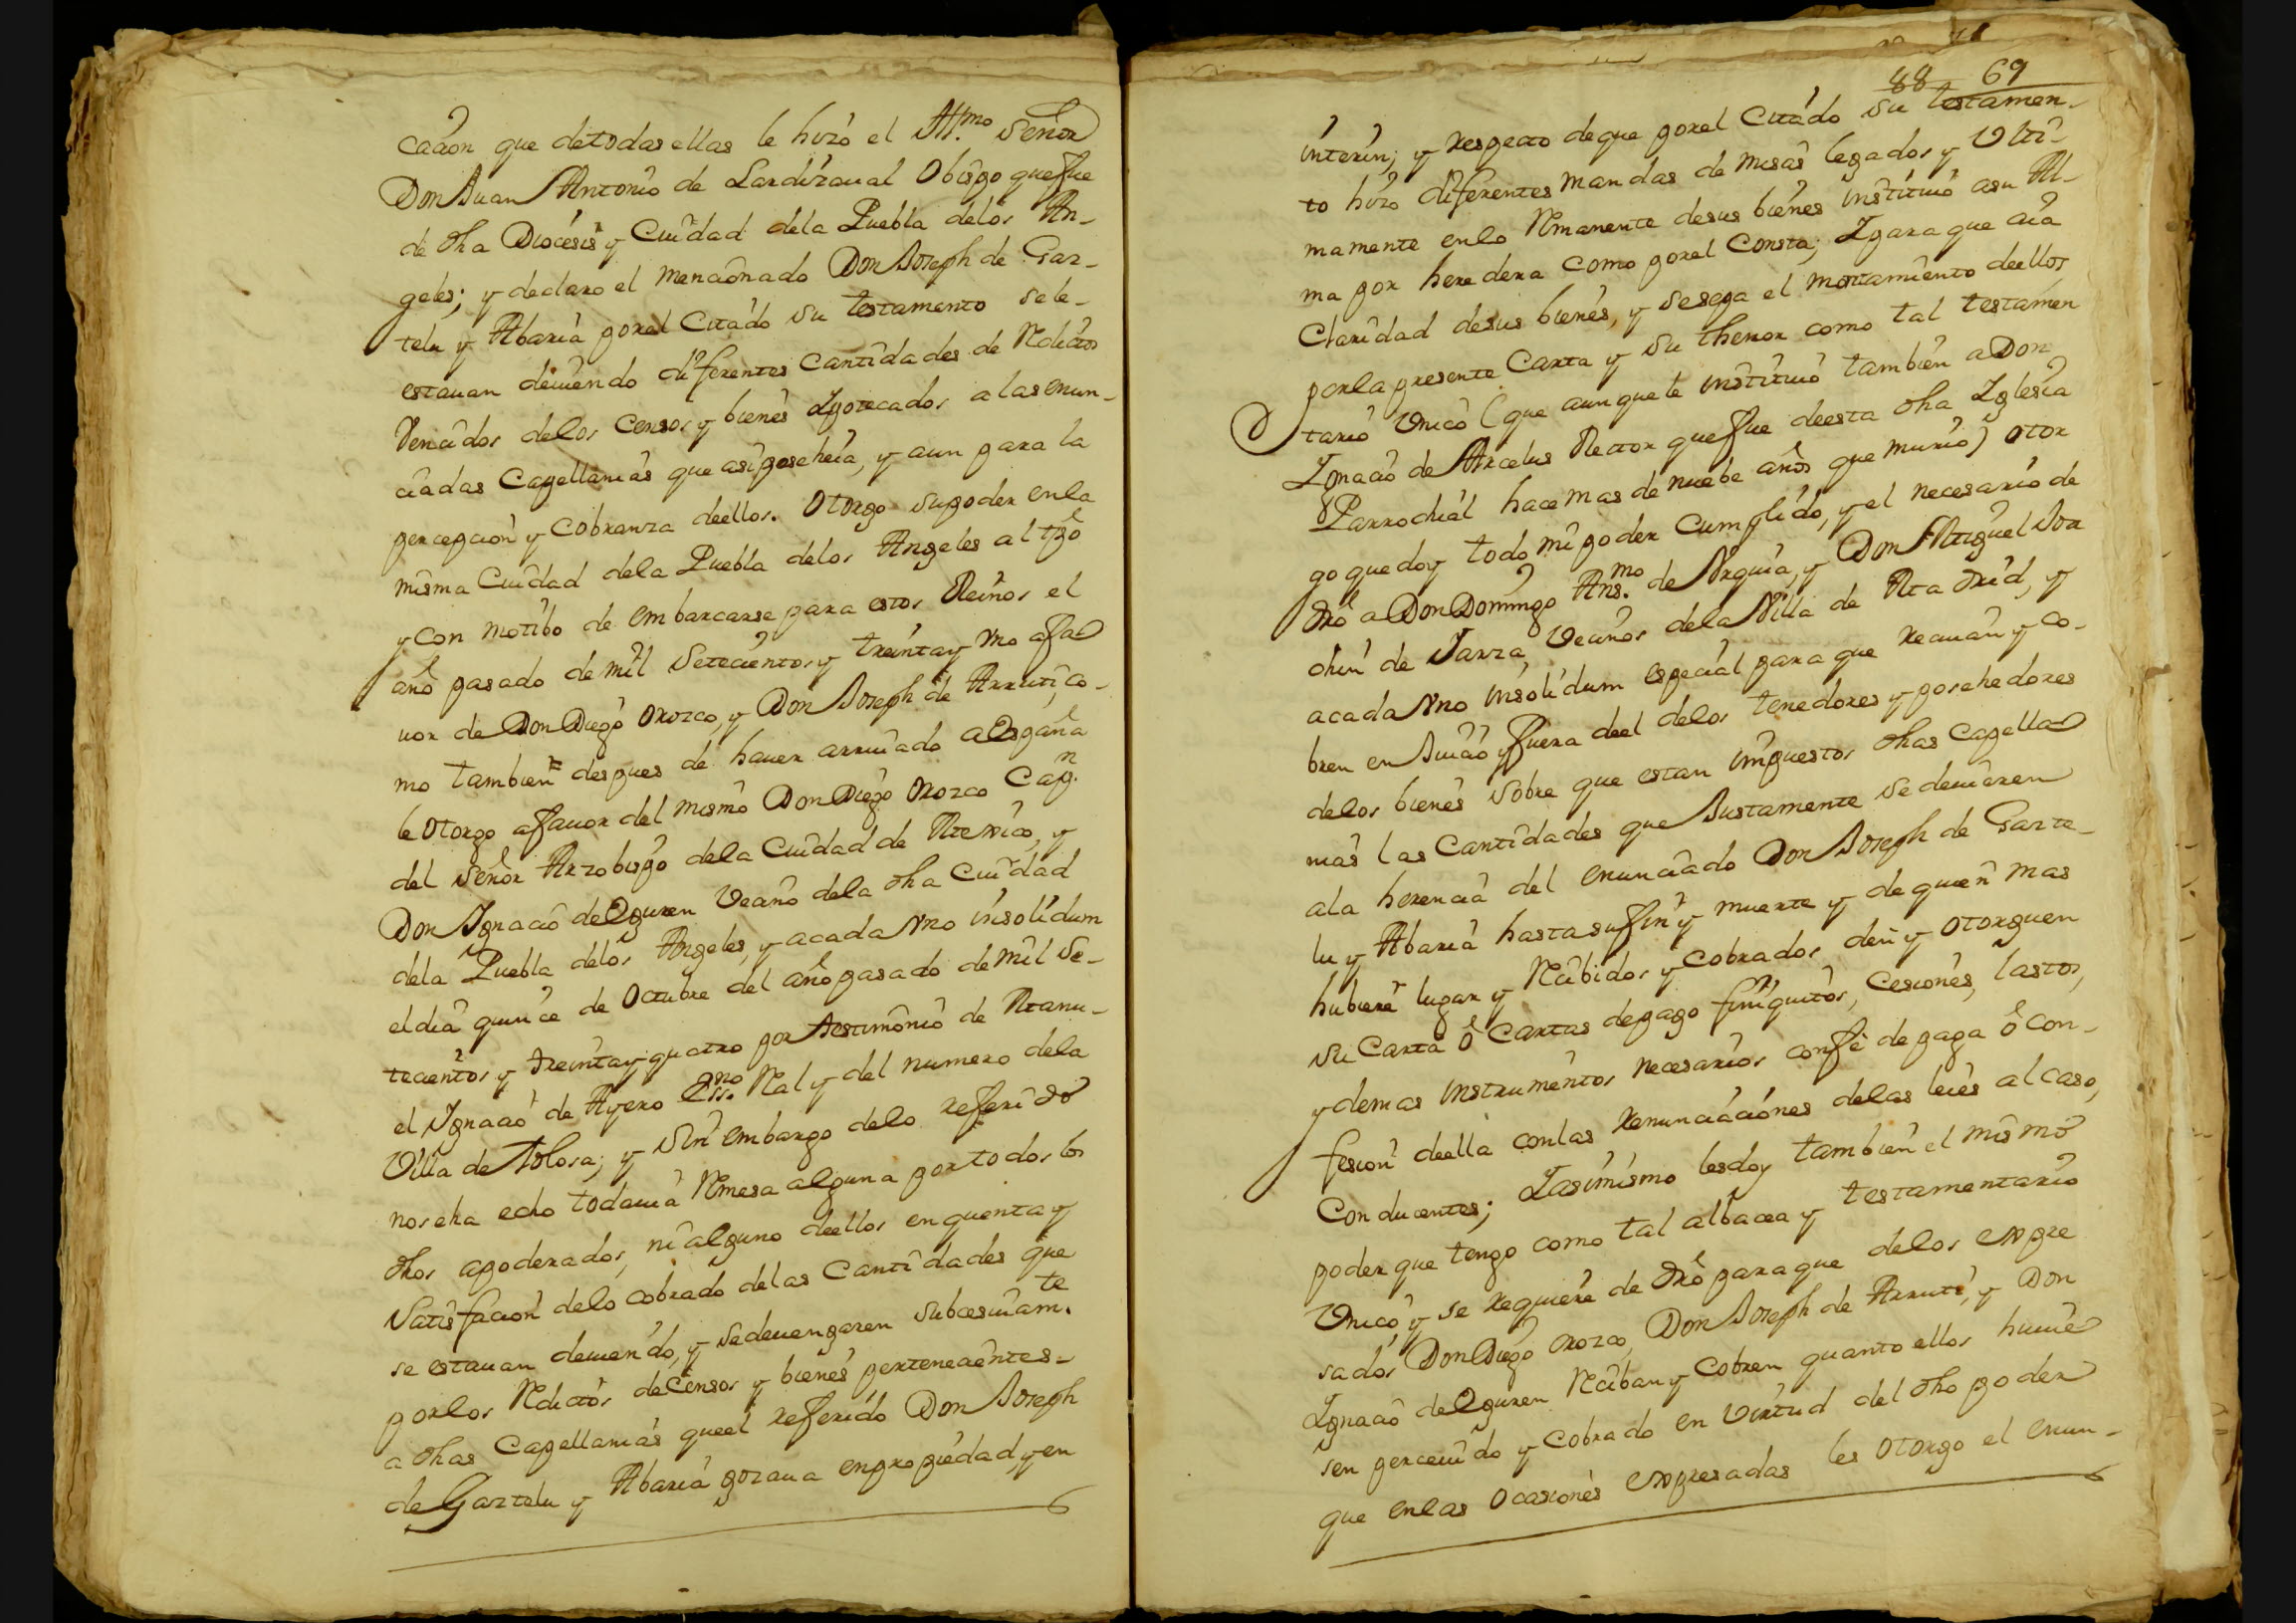 cacion que detodas ellas le hizo el Illmo. Señor
Don Juan Antonio de Lardizaual Obispo que fue
de dha Diocesis y Ciudad dela Puebla delos An-
geles; y declaro el mencionado Don Joseph de Gaz-
telu y Abaria porel Citado su testamento sele-
estauan deuiendo diferentes Cantidades de Reditos
Vencidos delos Censos y bienes Ypotecados alas enun-
ciadas Capellanias que asi poseheia, y aun para la
percepcion y Cobranza deellos. Otorgo supoder enla
misma Ciudad dela Puebla delos Angeles al tpo
y con motibo de embarcarse para estos Reinos el
año pasado de mil Setecientos y treinta y Vno afa
uor de Don Diego Orozco, y Don Joseph de Arruti, co-
mo tambien despues de hauer arriuado a España
le otorgo afauor del mismo Don Diego Orozco Capn.
del Señor Arzobispo dela Ciudad de Mexico, y
Don Ignacio de Eguren Vecino dela dha Ciudad
dela Puebla delos Angeles, y acada Vno insolidum
eldia quince de Octubre del año pasado de mil Se-
tecientos y treinta y quatro por testimonio de Manu-
el Ignacio de Ayero Essno. Real y del numero dela
Villa de Tolosa; y Sin embargo delo referido
nos eha echo todauia Remesa alguna por todos los
dhos apoderados, ni alguno deellos en quenta y
Satisfacion delo cobrado delas Cantidades que
se estauan deuiendo, y sedeuengaren subcesiuamte.
porlos Reditos de Censos y bienes pertenecientes-
a dhas Capellanias queel referido Don Joseph
de Gaztelu y Abaria gozaua enpropiedad, y en
88 69
interin; y respecto deque porel Citado su testamen-
to hizo diferentes mandas de misas legados y Ulti-
mamente enlo Remanente desus bienes instituio asu Al-
ma por heredera como porel Consta; Ypara que aia
Claridad desus bienes, y sesepa el montamiento deellos
porla presente Carta y su thenor como tal testamen
tario Unico (que aunque le instituio tambien a Don
Ignacio de Arcelus Rector que fue deesta dha Yglesia
Parrochial hace mas de nuebe años que murio) otor
go que doy todo mi poder Cumplido, y el necesario de
dro a Don Domingo Ansmo. de Arguia, y Don Miguel Joa
chin de Janza, Vecinos dela Villa de Madrid, y
acada Vno insolidum especial para que reciuan y co-
bren en Juicio y fuera deel delos tenedores y posehedores
delos bienes sobre que estan impuestos dhas Capella
nias las Cantidades que Justamente se deuieren
ala herencia del enunciado Don Joseph de Gazte-
lu y Abaria hasta sufin y muerte y de quien mas
hubiere lugar y Reciuidos y Cobrados den y otorguen
su Carta ô Cartas depago finiquitos, Cesiones, lastos,
y demas instrumentos necesarios con fe de paga ô con-
fesion deella conlas renunciaciones delas leies al caso,
Conducentes; Yasimismo lesdoy tambien el mismo
poder que tengo como tal albacea y testamentario
Unico y se requiere de dro para que delos expre
sados Don Diego Orozco, Don Joseph de Arruti, y Don
Ygnacio de Eguren Reciban y Cobren quanto ellos huuie
sen perceuido y Cobrado en Virtud del dho poder
que enlas Ocasiones expresadas les otorgo el enun-